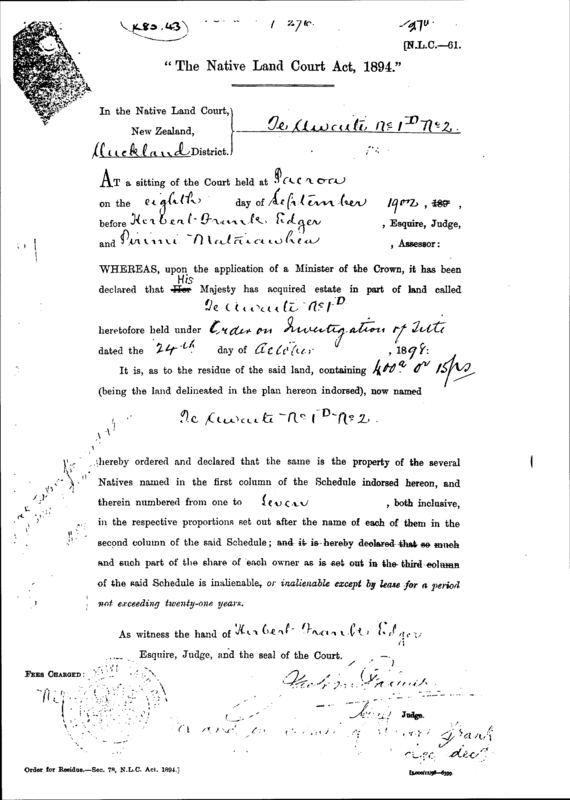 (K80.43)
[N.L.C.—61.
"The Native Land Court Act, 1894."
In the Native Land Court,
New Zealand,
Auckland District.
Te Awaiti No 1D No 2.
AT a sitting of the Court held at Paeroa
on the eighth day of September 1902, 189 ,
before Herbert Frank Edger , Esquire, Judge,
and , Assessor:
WHEREAS, upon the application of a Minister of the Crown, it has been
His
declared that Her Majesty has acquired estate in part of land called
Te Awaiti No 1D
heretofore held under Order on Investigation of Title
dated the 24th day of October , 1898:
It is, as to the residue of the said land, containing 400a 0r 15ps
(being the land delineated in the plan hereon indorsed), now named
Te Awaiti No 1D No 2.
hereby ordered and declared that the same is the property of the several
Natives named in the first column of the Schedule indorsed hereon, and
therein numbered from one to seven , both inclusive,
in the respective proportions set out after the name of each of them in the
second column of the said Schedule; and it is hereby declared that so much
and such part of the share of each owner as is set out in the third column
of the said Schedule is inalienable, or inalienable except by lease for a period
not exceeding twenty-one years.
As witness the hand of Herbert Frank Edger
Esquire, Judge, and the seal of the Court.
FEES CHARGED:
Nil
Judge.
Order for Residue.—Sec. 78, N.L.C. Act, 1894.]